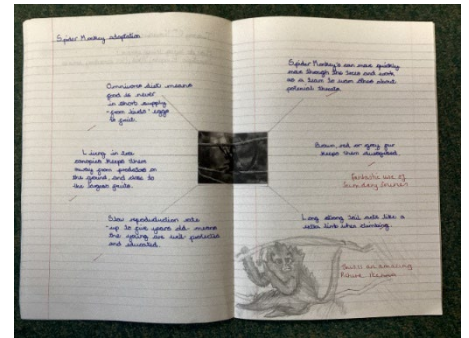 Spider Monkey adaptation
Omnivore diet means
food is never
in short supply
- from birds' eggs
to fruit.
Living in tree
canopies keeps them
away from predators on
the ground, and close to
the largest fruits.
Slow reproduction rate
- up to five years old - means
the young are well protected
and educated.
Spider Monkey's can move quickly
move through the trees and work
as a team to warn others about
potential threats.
Brown, red or grey fur
keeps them camouflaged.
fantastic use of
Secondary Sources
Long strong tail acts like a
extra limb when climbing.
an amazing
picture